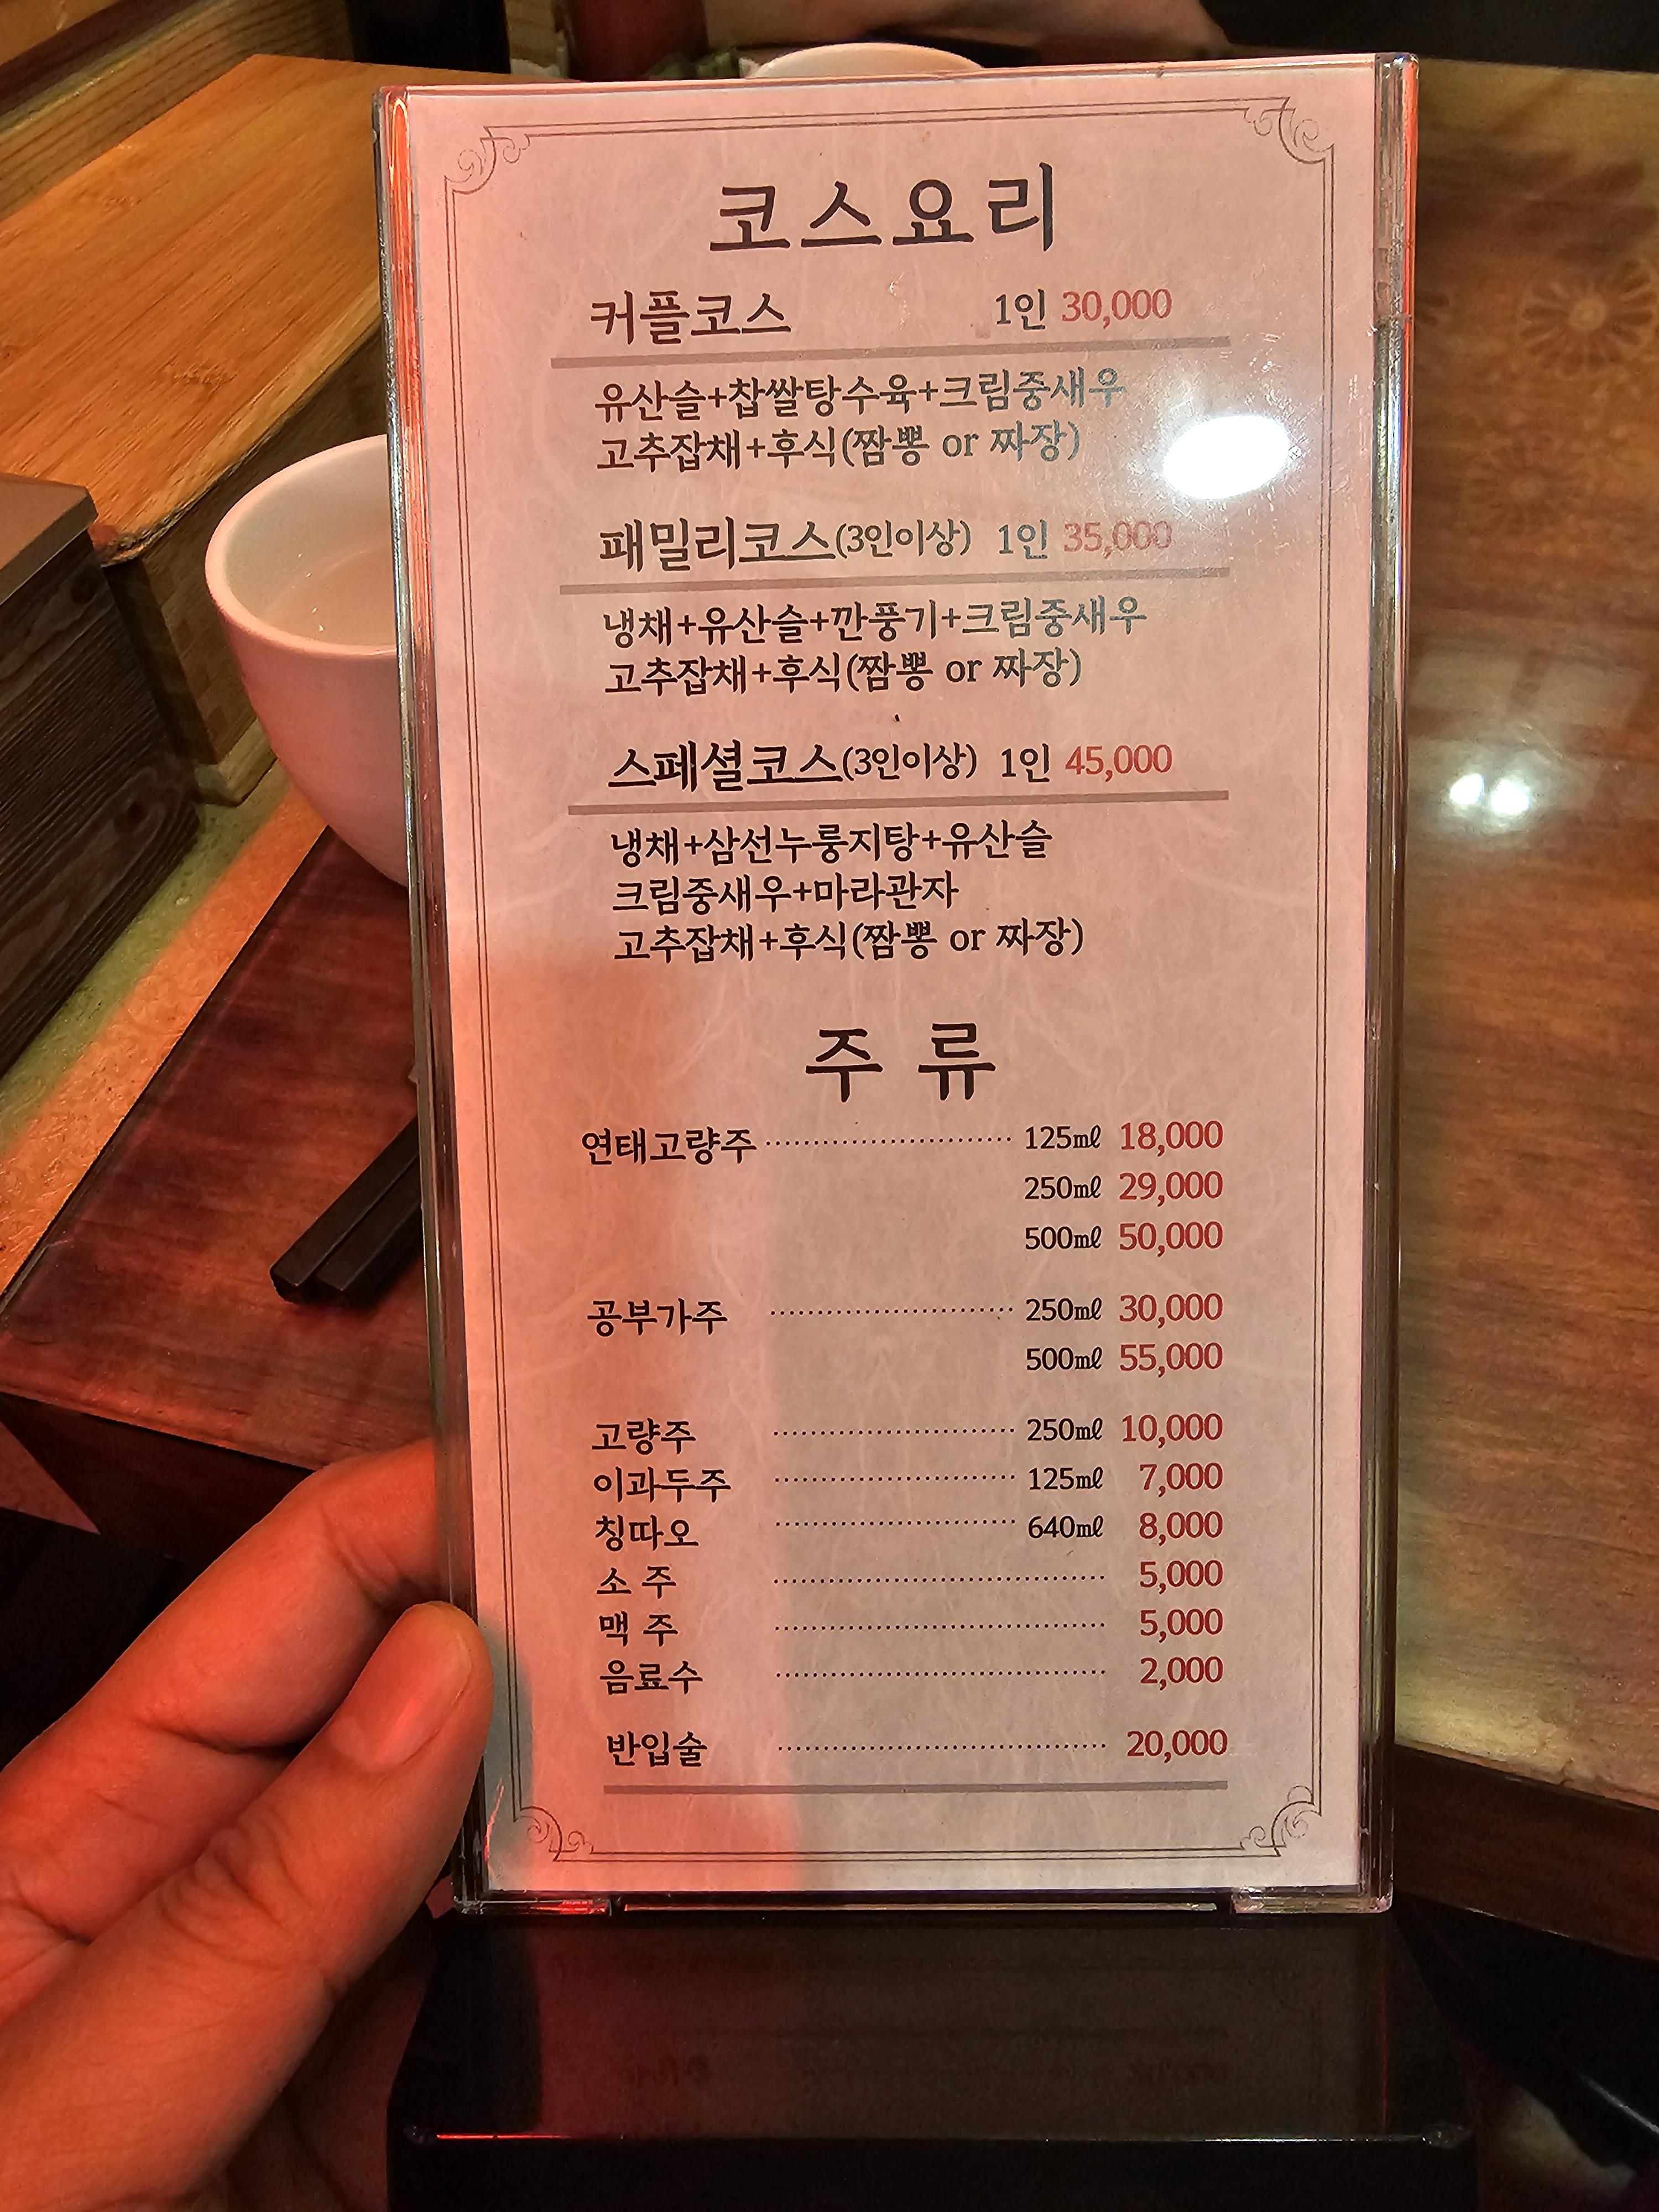 코스요리
커플코스 1인 30,000
유산슬+찹쌀탕수육+크림중새우
고추잡채+후식(짬뽕 or 짜장)
패밀리코스(3인이상) 1인 35,000
냉채+유산슬+깐풍기+크림중새우
고추잡채+후식(짬뽕 or 짜장)
스페셜코스(3인이상) 1인 45,000
냉채+삼선누룽지탕+유산슬
크림중새우+마라관자
고추잡채+후식(짬뽕 or 짜장)
주 류
연태고량주 ............................ 125㎖ 18,000
250㎖ 29,000
500㎖ 50,000
공부가주 ............................ 250㎖ 30,000
500㎖ 55,000
고량주 ............................ 250㎖ 10,000
이과두주 ............................ 125㎖ 7,000
칭따오 ............................ 640㎖ 8,000
소 주 ...................................... 5,000
맥 주 ...................................... 5,000
음료수 ...................................... 2,000
반입술 ...................................... 20,000